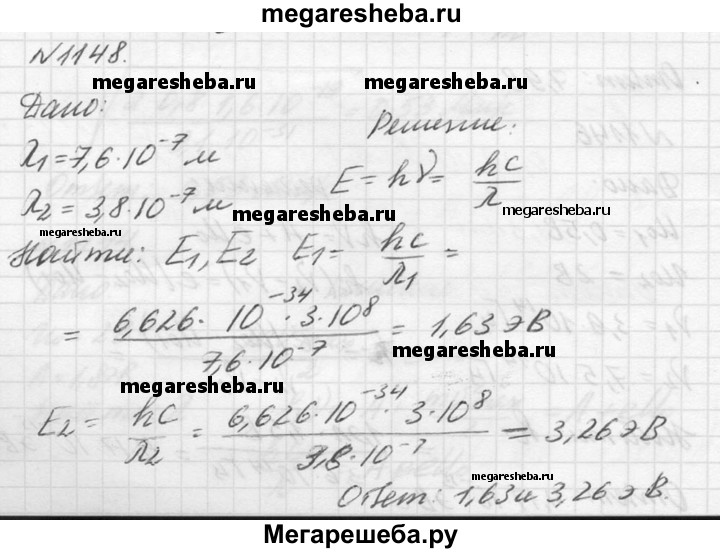 megaresheba.ru
N1148.
megaresheba.ru megaresheba.ru
Дано:
Решение:
λ1 = 7,6 · 10⁻⁷ м
E = hν = hc/λ
λ2 = 3,8 · 10⁻⁷ м
megaresheba.ru
megaresheba.ru
Найти: E1, E2 E1 = hc/λ1 =
= 6,626 · 10⁻³⁴ · 3 · 10⁸ / 7,6 · 10⁻⁷ = 1,63 эВ
megaresheba.ru
megaresheba.ru
E2 = hc/λ2 = 6,626 · 10⁻³⁴ · 3 · 10⁸ / 3,8 · 10⁻⁷ = 3,26 эВ
megaresheba.ru
Ответ: 1,63 и 3,26 эВ.
Мегарешеба.ру